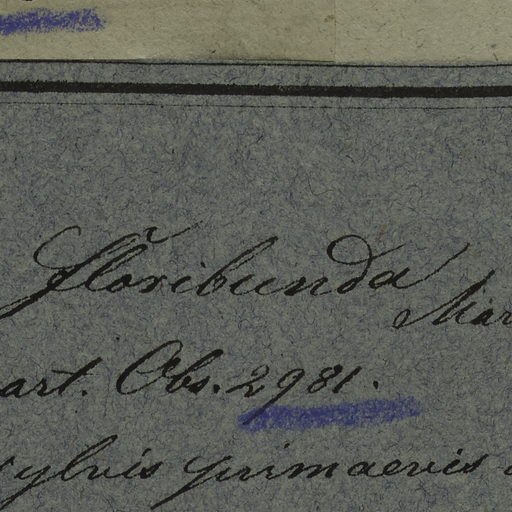 floribunda Mar
art. Obs. 2981.
sylvis primaevis